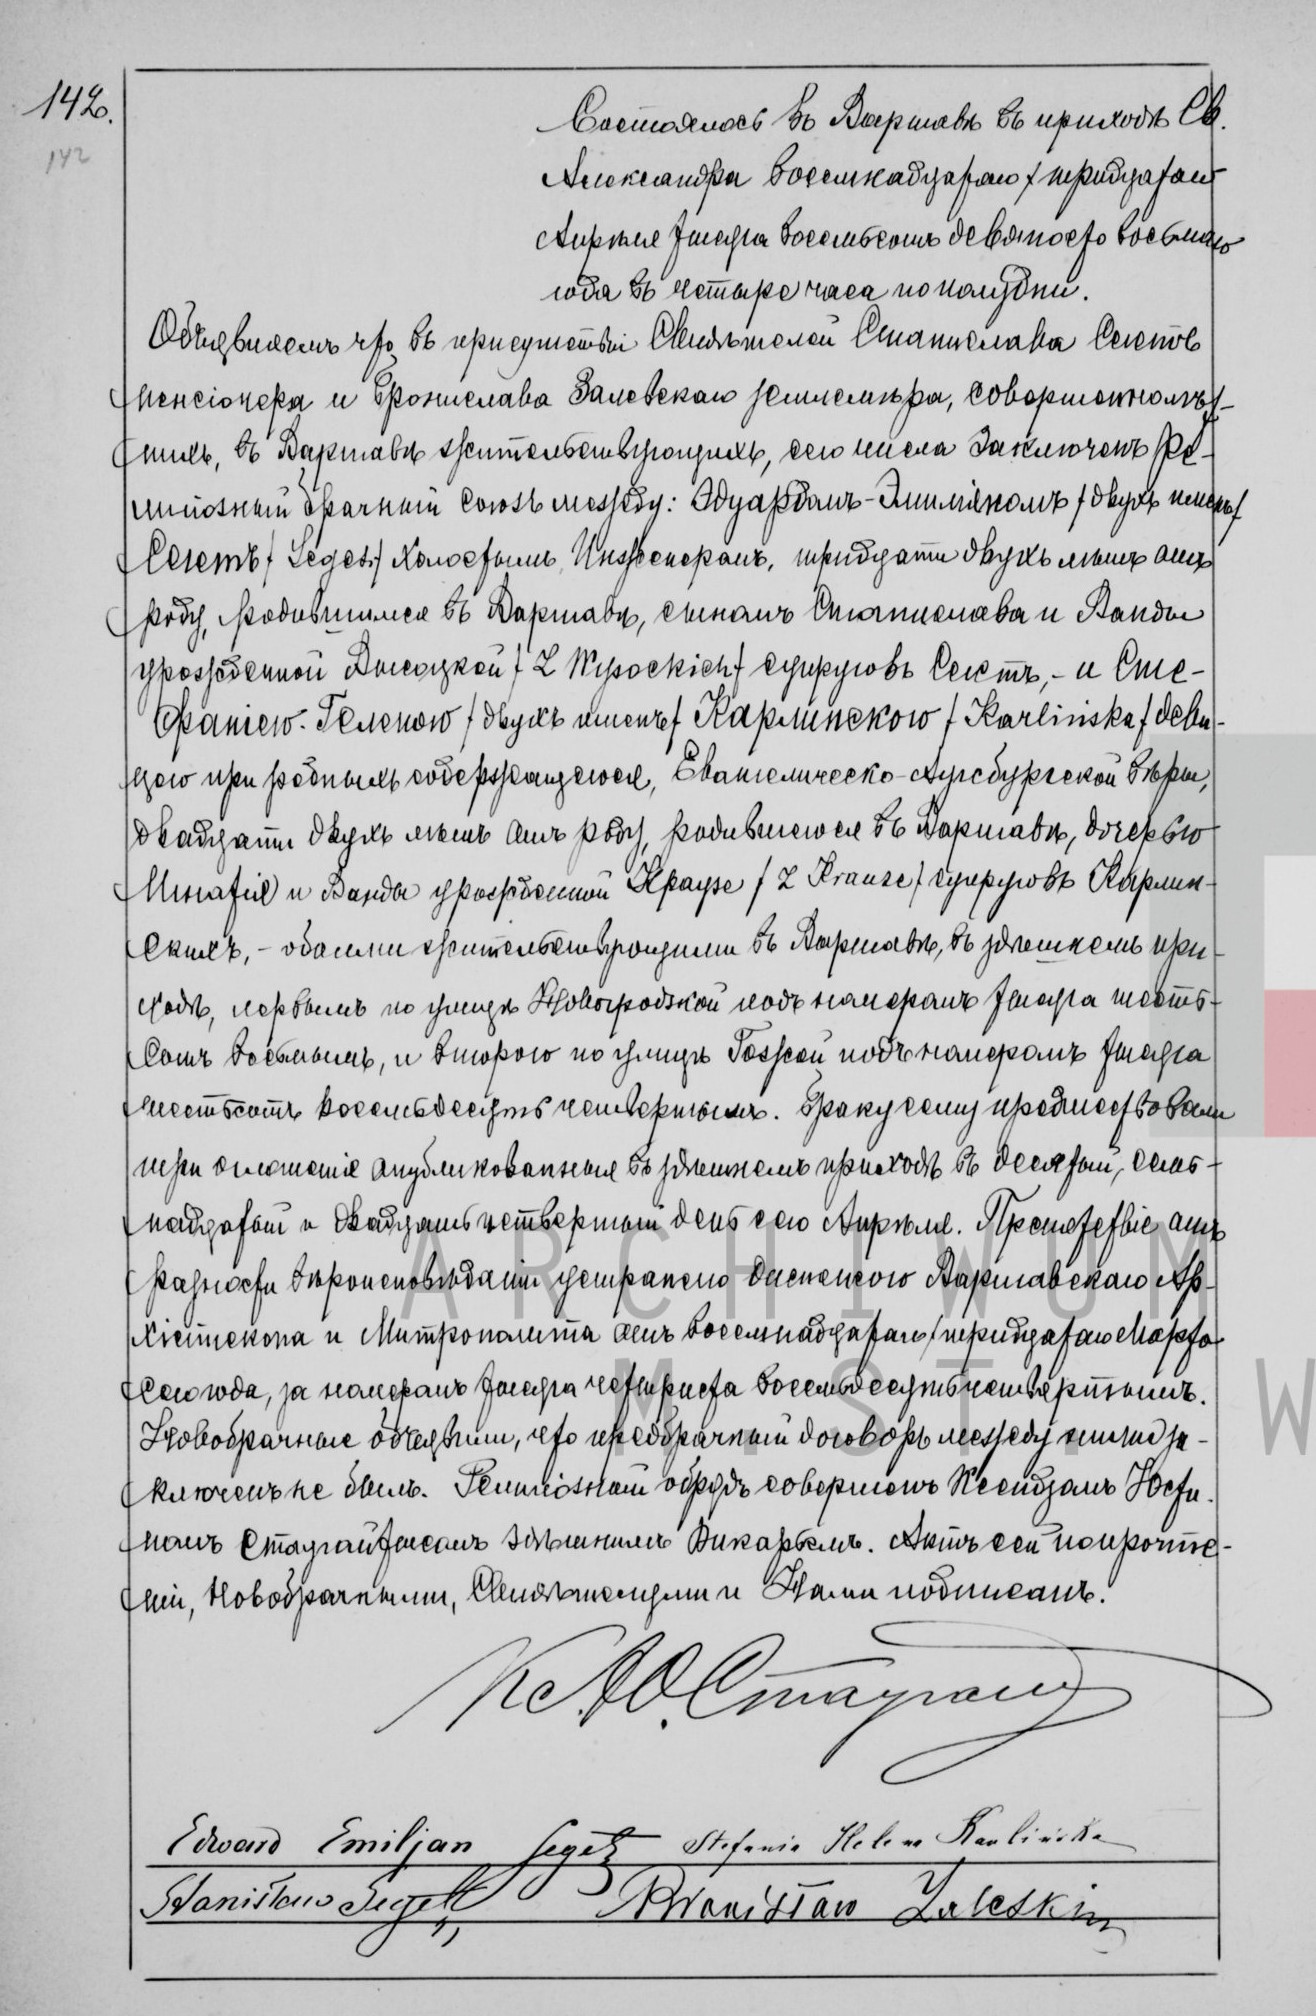 142.
142
Состоялось въ Варшавѣ въ приходѣ Св.
Александра восемнадцатаго / тридцатаго
Апрѣля тысяча восемьсотъ девяносто восьмаго
года въ четыре часа по полудни.
Объявляемъ что въ присутствіи Свидѣтелей Станислава Сегетъ
пенсіонера и Бронислава Залевскаго землемѣра, совершеннолѣт-
нихъ, въ Варшавѣ жительствующихъ, сего числа заключенъ ре-
лигіозный брачный союзъ между: Эдуардомъ-Эмиліяномъ / двухъ именъ /
Сегетъ / Seget / холостымъ, Инженеромъ, тридцати двухъ лѣтъ отъ
роду, родившимся въ Варшавѣ, сыномъ Станислава и Ванды
урожденной Высоцкой / z Wysockich / супруговъ Сегетъ, - и Сте-
фаніею-Геленою / двухъ именъ / Карлинскою / Karlińska / дѣви-
цею при родныхъ содержащеюся, Евангелическо-Аугсбургской вѣры,
двадцати двухъ лѣтъ отъ роду, родившеюся въ Варшавѣ, дочерью
Игнатія и Ванды урожденной Краузе / z Krauze / супруговъ Карлин-
скихъ, - обоими жительствующими въ Варшавѣ, въ здѣшнемъ при-
ходѣ, первымъ по улицѣ Новогродзкой подъ номеромъ тысяча шесть-
сотъ восьмымъ, и второю по улицѣ Гожей подъ номеромъ тысяча
шестьсотъ восемьдесятъ четвертымъ. Браку сему предшествовали
три оглашенія опубликованныя въ здѣшнемъ приходѣ въ десятый, сем-
надцатый и двадцать четвертый день сего Апрѣля. Препятствіе отъ
разности вѣроисповѣданія устранено диспенсою Варшавскаго Ар-
хіепископа и Митрополита отъ восемнадцатаго / тридцатаго Марта
сего года, за номеромъ тысяча четыриста восемьдесятъ четвертымъ.
Новобрачные объявили, что предбрачный договоръ между ними за-
ключенъ не былъ. Религіозный обрядъ совершенъ Ксендзомъ Юсти-
номъ здѣшнимъ Викаріемъ. Актъ сей по прочте-
ніи, Новобрачными, Свидѣтелями и Нами подписанъ.
Edward Emiljan Seget Stefania Helena Karlińska
Stanisław Seget Bronisław Zaleski
ARCHIWUM
M. ST. W